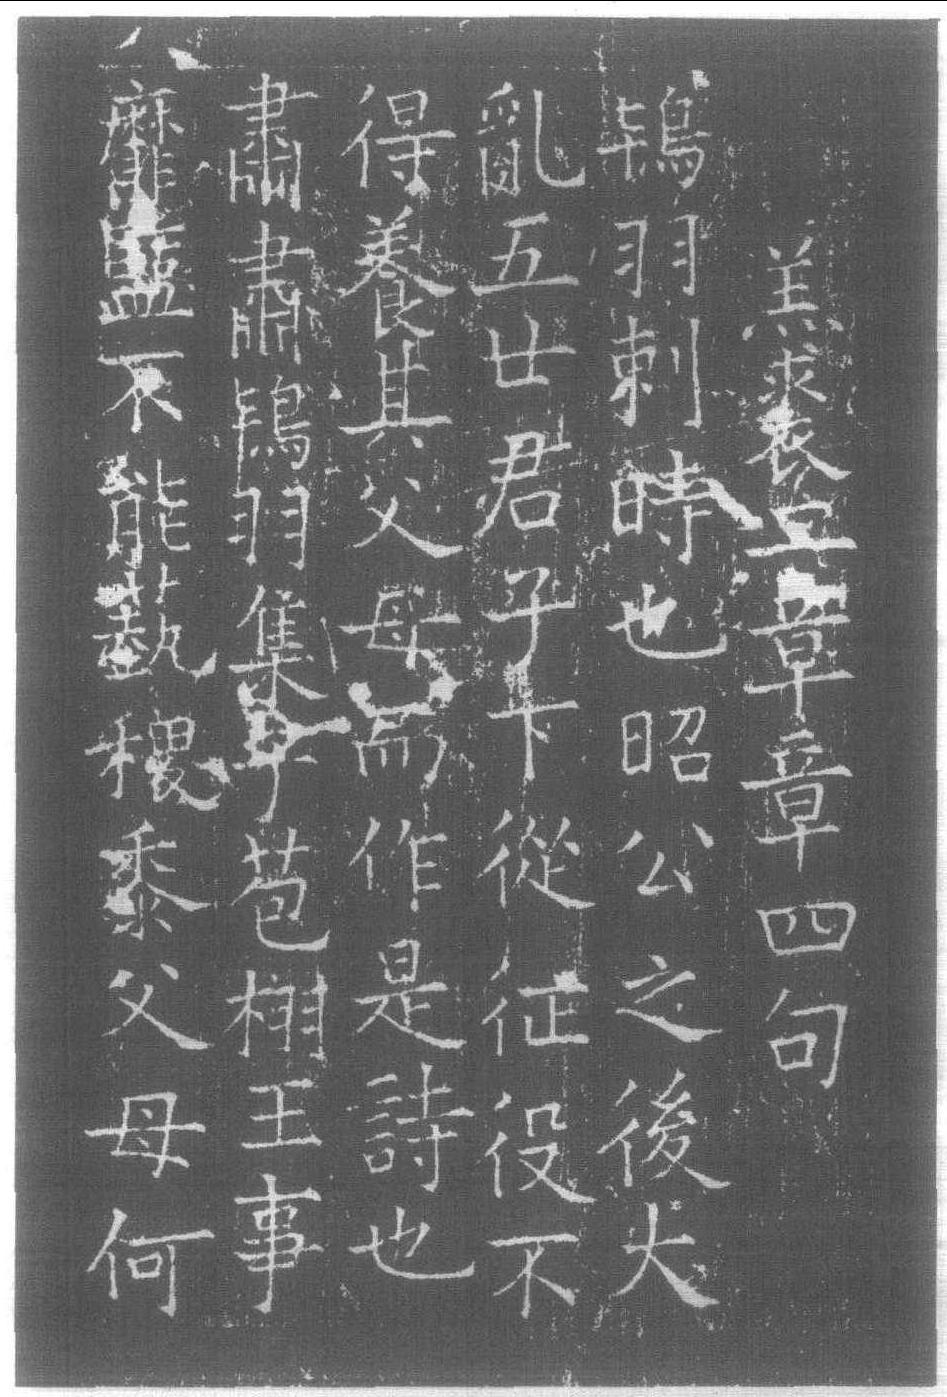 羔裘二章章四句
鴇羽刺時也昭公之後大
亂五世君子下從征役不
得養其父母而作是詩也
肅肅鴇羽集于苞栩王事
靡盬不能蓺稷黍父母何